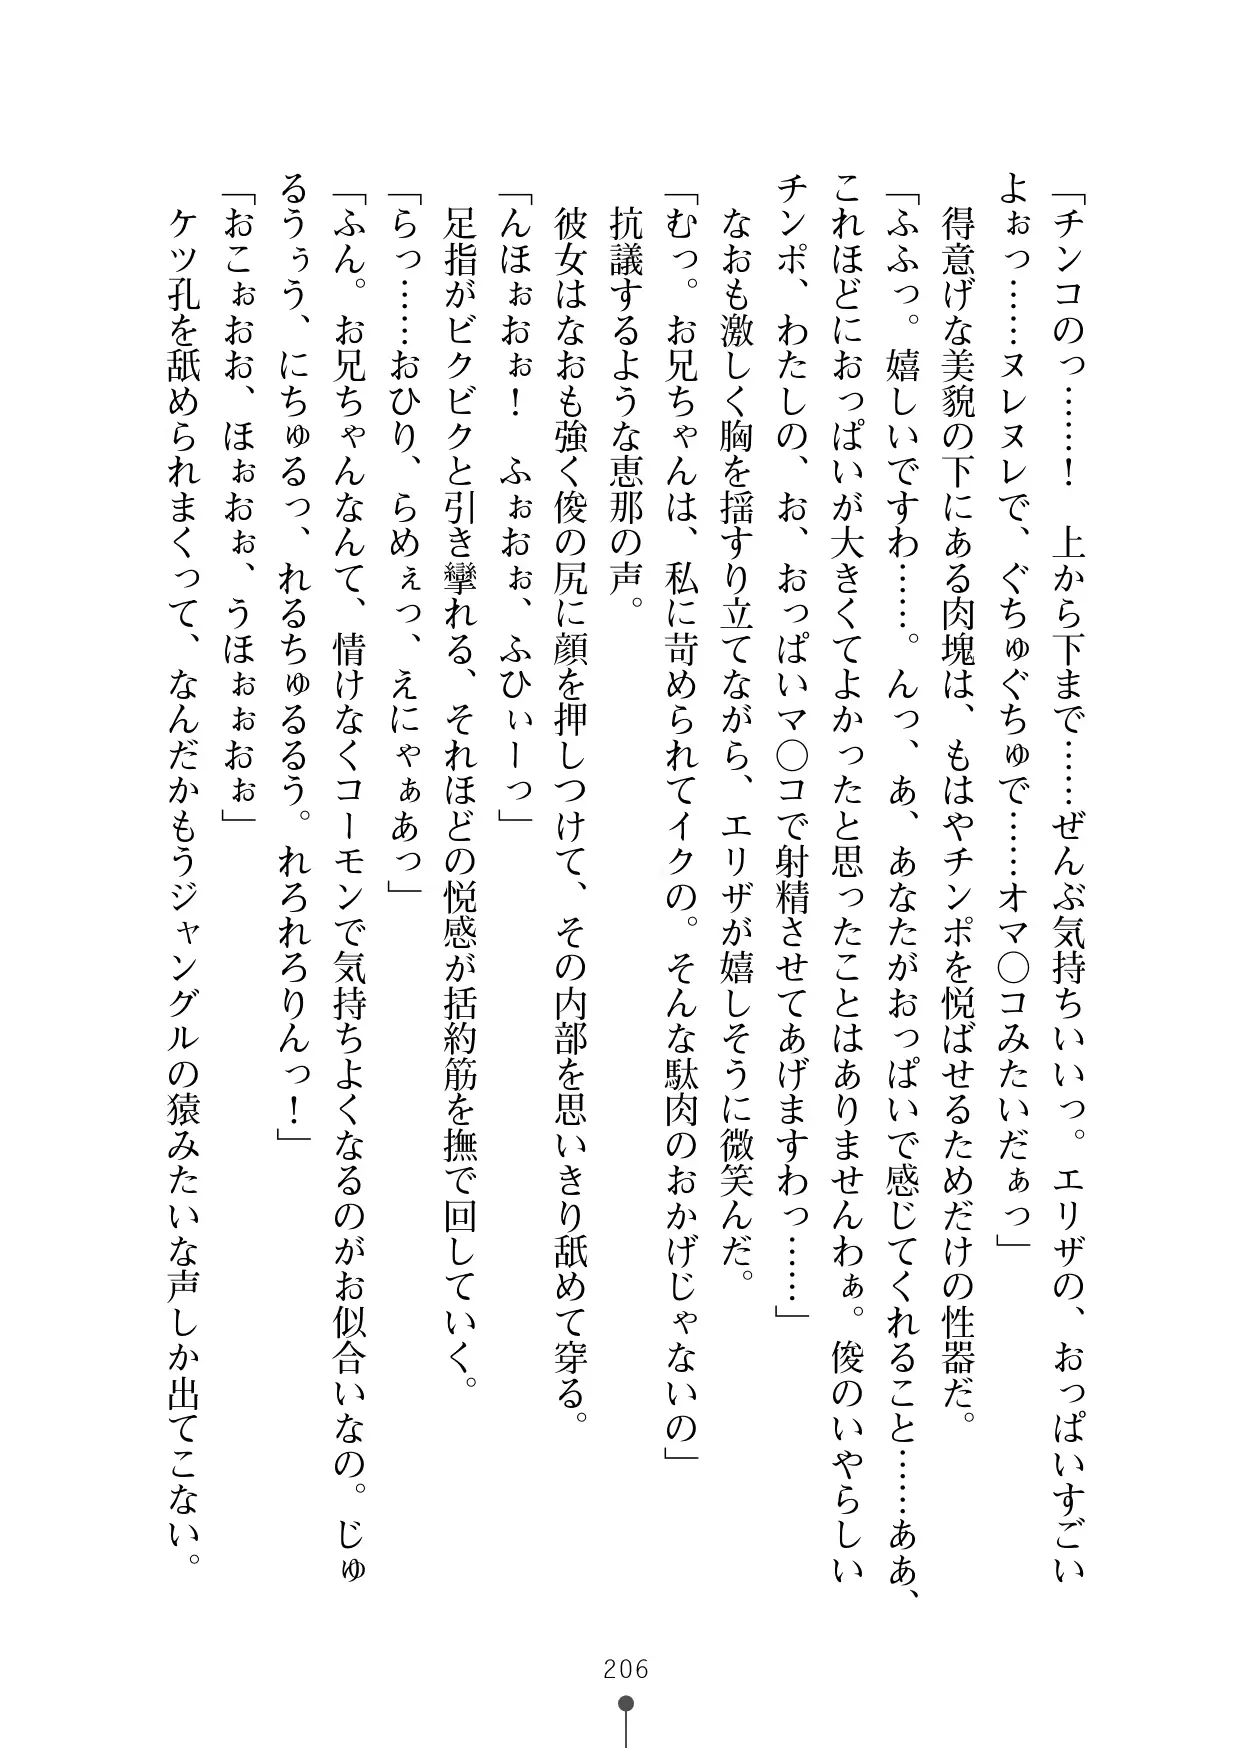 「チンコのっ……！　上から下まで……ぜんぶ気持ちいいっ。エリザの、おっぱいすごい
よぉっ……ヌレヌレで、ぐちゅぐちゅで……オマ〇コみたいだぁっ」
　得意げな美貌の下にある肉塊は、もはやチンポを悦ばせるためだけの性器だ。
「ふふっ。嬉しいですわ……。んっ、あ、あなたがおっぱいで感じてくれること……ああ、
これほどにおっぱいが大きくてよかったと思ったことはありませんわぁ。俊のいやらしい
チンポ、わたしの、お、おっぱいマ〇コで射精させてあげますわっ……」
　なおも激しく胸を揺すり立てながら、エリザが嬉しそうに微笑んだ。
「むっ。お兄ちゃんは、私に苛められてイクの。そんな駄肉のおかげじゃないの」
　抗議するような恵那の声。
　彼女はなおも強く俊の尻に顔を押しつけて、その内部を思いきり舐めて穿る。
「んほぉおぉ！　ふぉおぉ、ふひぃーっ」
　足指がビクビクと引き攣れる、それほどの悦感が括約筋を撫で回していく。
「らっ……おひり、らめぇっ、えにゃぁあっ」
「ふん。お兄ちゃんなんて、情けなくコーモンで気持ちよくなるのがお似合いなの。じゅ
るうぅう、にちゅるっ、れるちゅるるう。れろれろりんっ！」
「おこぉおお、ほぉおぉ、うほぉぉおぉ」
　ケツ孔を舐められまくって、なんだかもうジャングルの猿みたいな声しか出てこない。
206